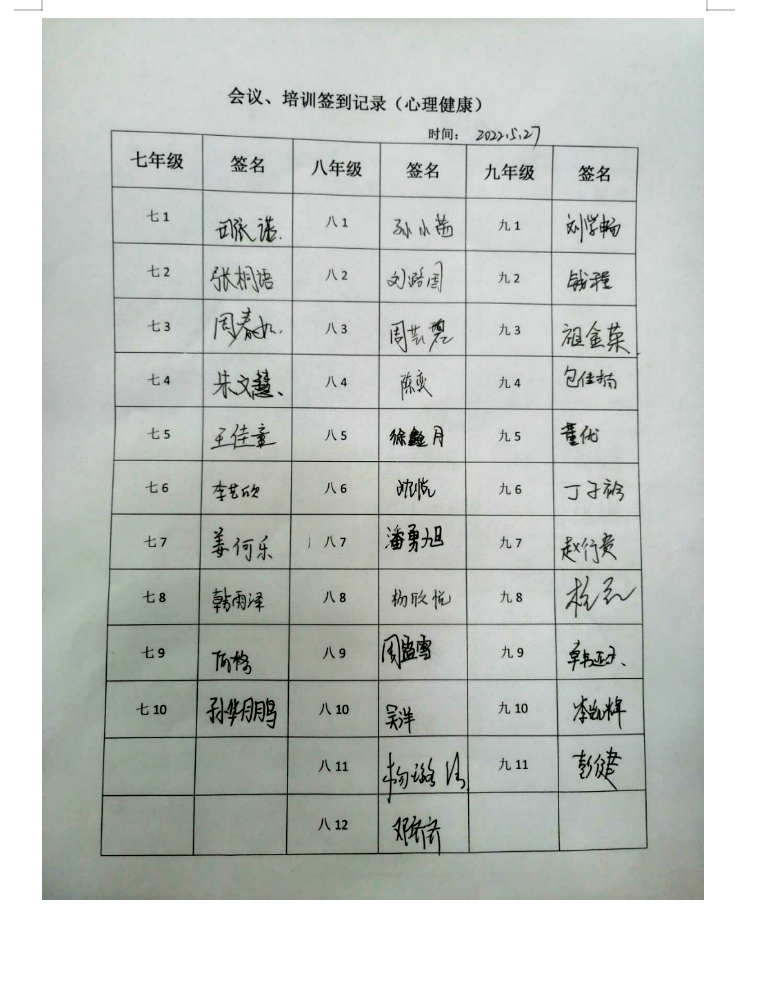 会议、培训签到记录（心理健康）
时间： 2022.5.27
七年级 签名 八年级 签名 九年级 签名
七1 八1 孙小茜 九1 刘学畅
七2 张桐语 八2 刘路周 九2 钱程
七3 周春如. 八3 周芸碧 九3 祖金荣
七4 朱文慧、 八4 陈奕 九4 包佳扬
七5 王佳童 八5 徐鑫月 九5 董优
七6 李艺欣 八6 九6 丁子衿
七7 姜何乐 八7 潘勇旭 九7 赵行贵
七8 韩雨泽 八8 杨欣悦 九8
七9 八9 周盈雪 九9
七10 孙华月鹏 八10 吴洋 九10 李凯辉
八11 杨璐洁 九11 彭健
八12 邓乔乔